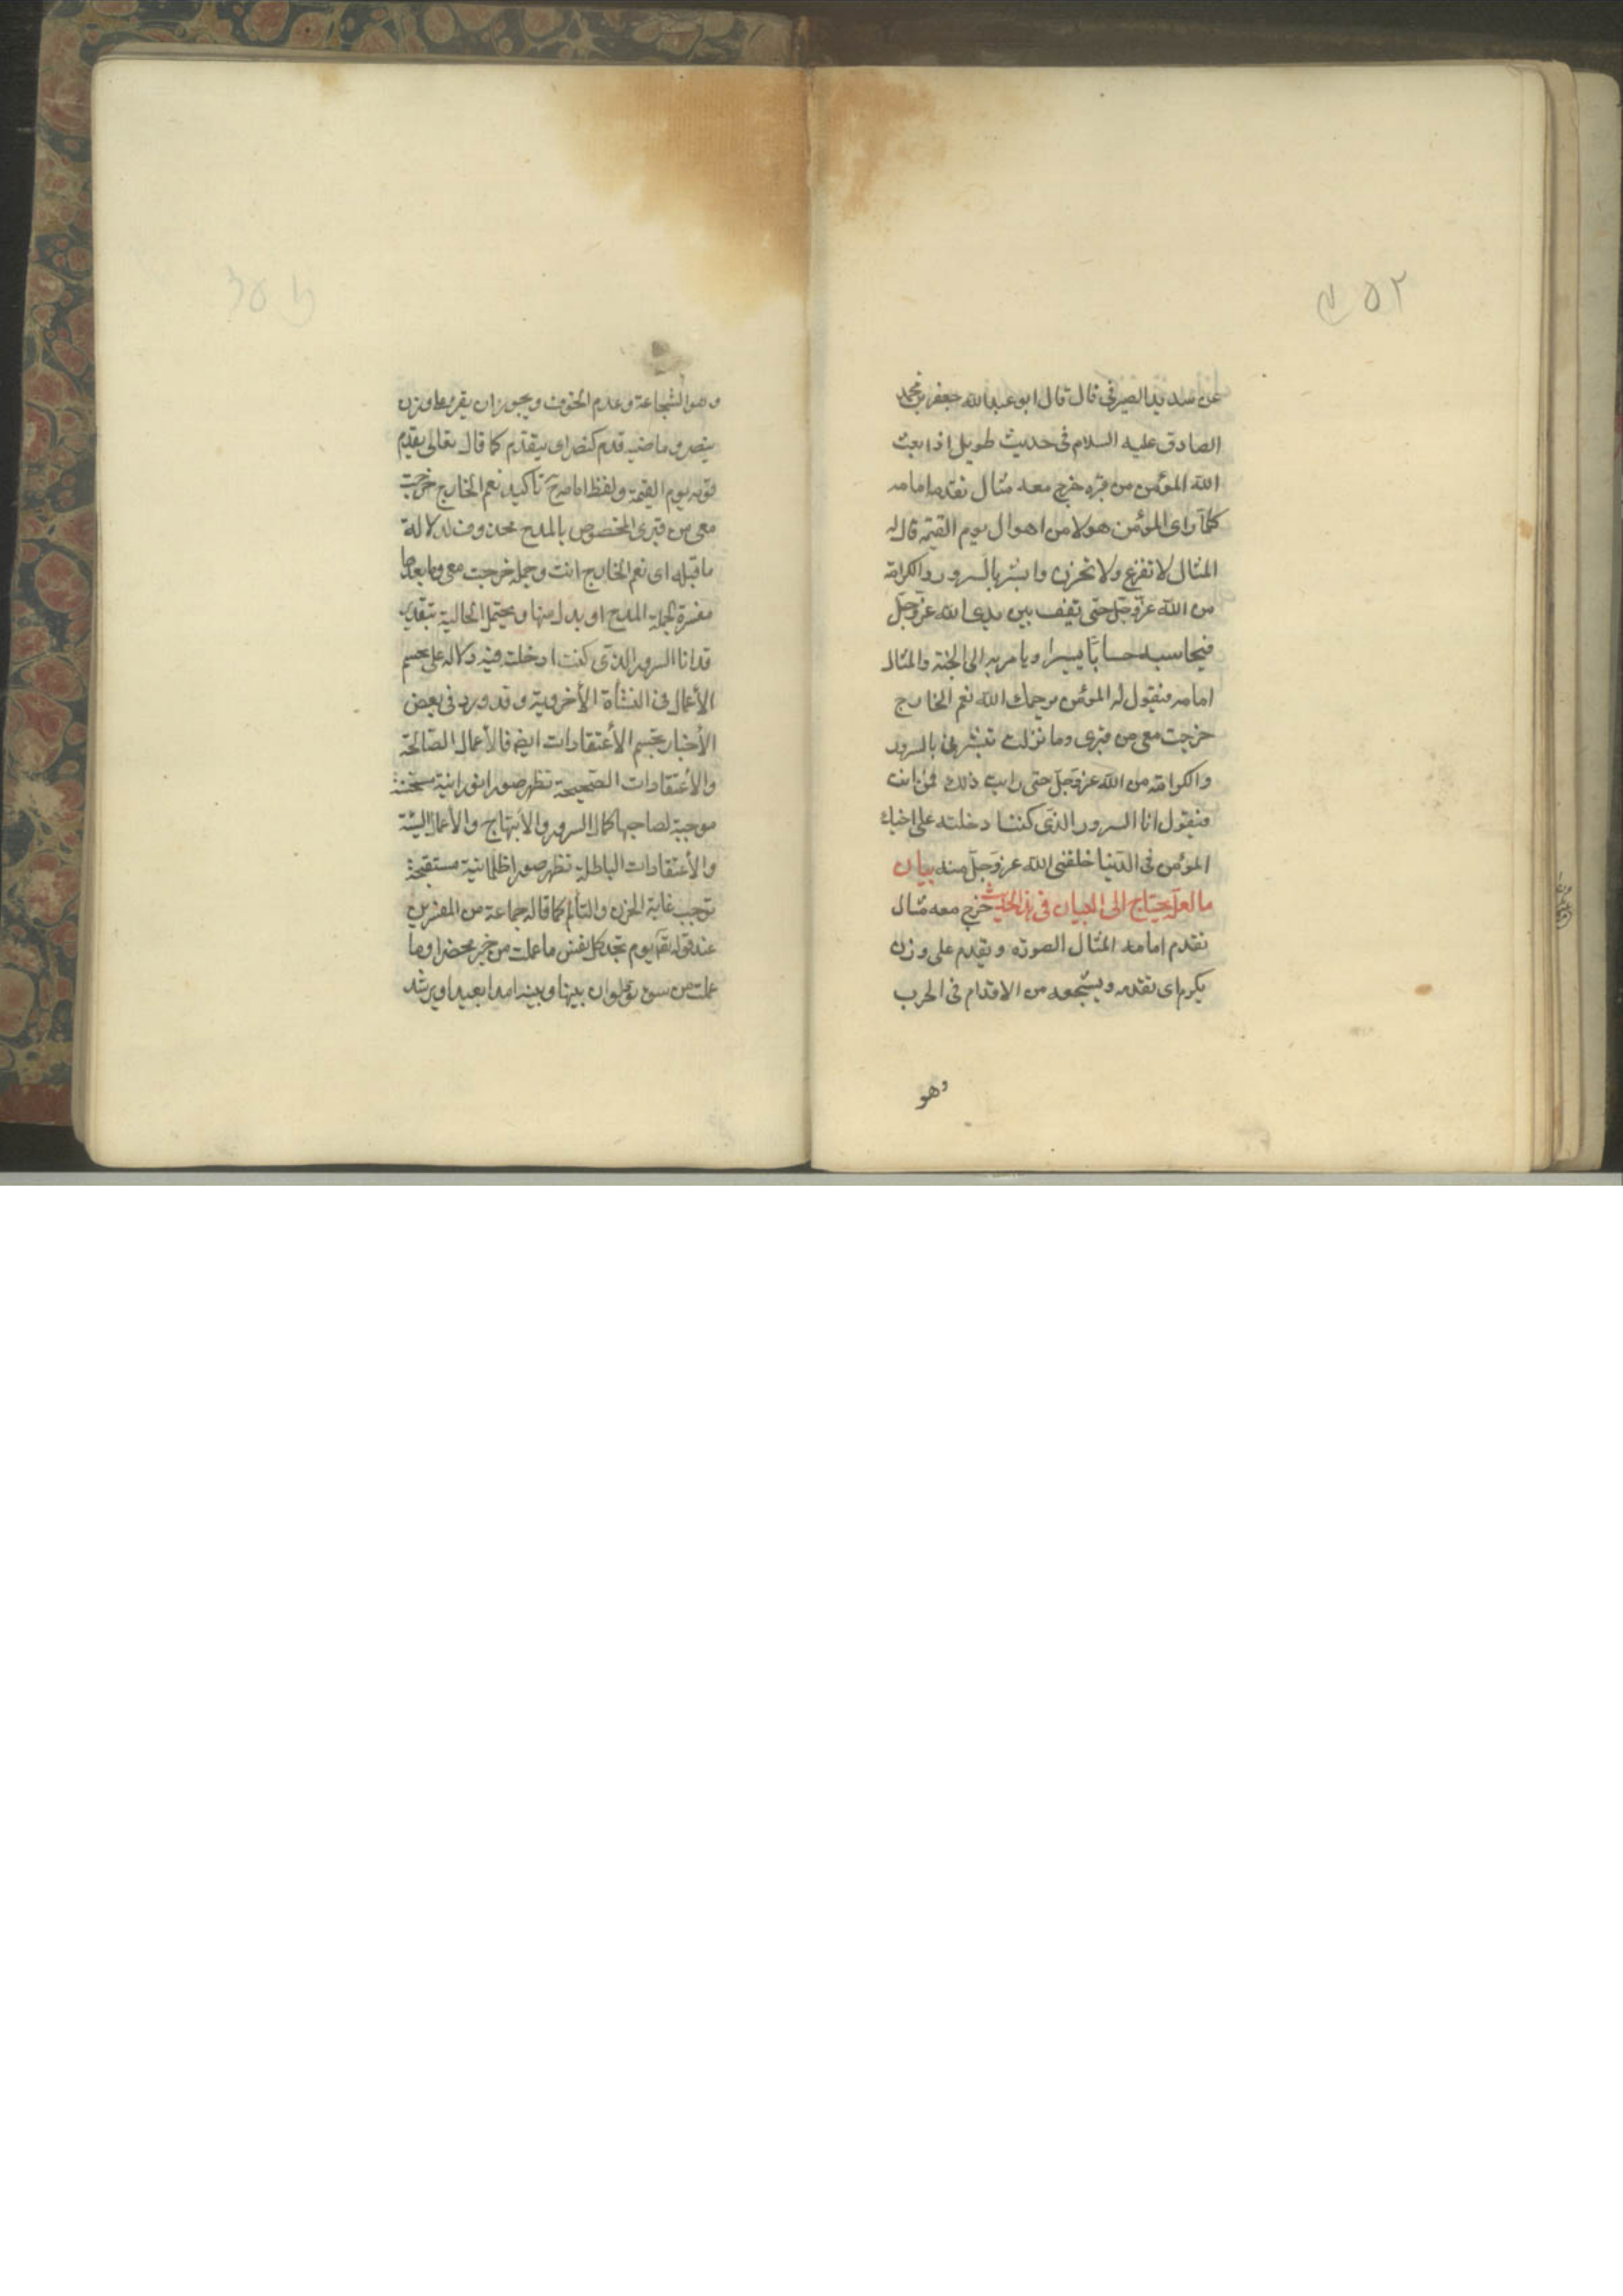 ٢٥٢
عن سدير الصيرفى قال قال ابو عبد الله جعفر بن محمد
الصادق عليه السلام فى حديث طويل اذا بعث
الله المؤمن من قبره خرج معه مثال يقدمه امامه
كلما راى المؤمن هولا من اهوال يوم القيمة قال له
المثال لا تفزع ولا تحزن وابشر بالسرور والكرامة
من الله عز وجل حتى تقف بين يدى الله عز وجل
فيحاسبه حسابا يسيرا ويامر به الى الجنة والمثال
امامه فيقول له المؤمن يرحمك الله نعم الخارج
خرجت معى من قبرى وما زلت تبشرنى بالسرور
والكرامة من الله عز وجل حتى رايت ذلك فمن انت
فيقول انا السرور الذى كنت ادخلته على اخيك
المؤمن فى الدنيا خلقنى الله عز وجل منه بيان
ما لعله يحتاج الى البيان فى هذا الحديث خرج معه مثال
يقدم امامه المثال الصورة ويقدم على وزن
يكرم اى يقدمه ويشجعه من الاقدام فى الحرب
وهو
وهو الشجاعة وعدم الخوف ويجوز ان يقرء على وزن
ينصر وماضيه قدم كنصر اى يتقدم كما قال تعالى يقدم
قومه يوم القيمة ولفظ امامه ح تاكيد نعم الخارج خرجت
معى من قبرى المخصوص بالمدح محذوف لدلالة
ما قبله اى نعم الخارج انت وجملة خرجت معى وما بعدها
مفسرة لجملة المدح او بدل منها ويحتمل الحالية بتقدير
قد انا السرور الذى كنت ادخلت فيه دلالة على تجسم
الأعمال فى النشأة الأخروية وقد ورد فى بعض
الأخبار تجسم الأعتقادات ايضا فالأعمال الصالحة
والأعتقادات الصحيحة تظهر صورا نورانية مستحسنة
موجبة لصاحبها كمال السرور والأبتهاج والأعمال السيئة
والأعتقادات الباطلة تظهر صورا ظلمانية مستقبحة
توجب غاية الحزن والتألم كما قاله جماعة من المفسرين
عند قوله تعا يوم تجد كل نفس ما عملت من خير محضرا وما
عملت من سوء تود لو ان بينها وبينه امدا بعيدا ويرشد